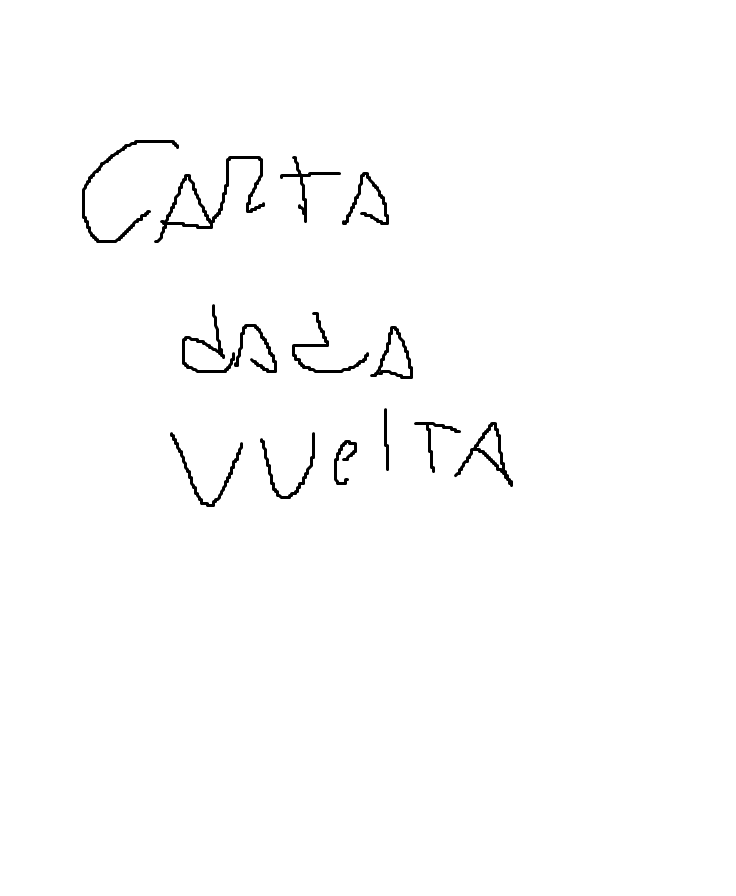 CARTA
dada
VUelTA